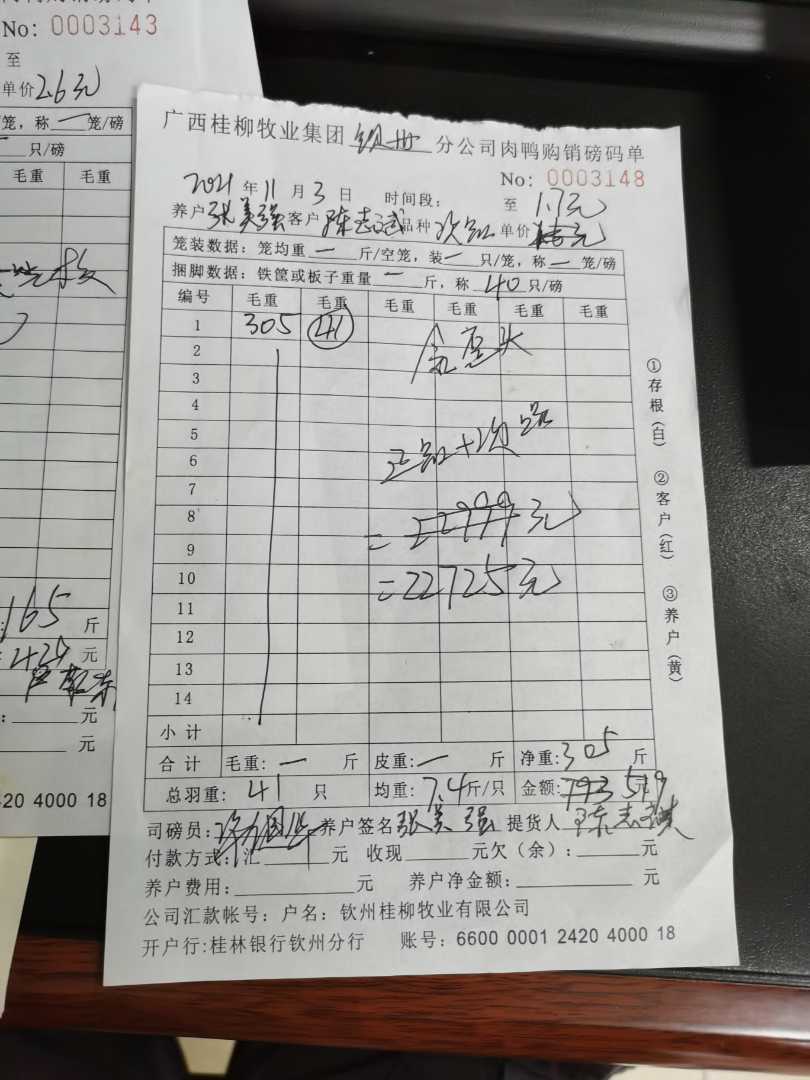 No: 0003143
至
单价2.6元
笼，称一笼/磅
只/磅
毛重 毛重
165 斤
424 元
元
元
420 4000 18
广西桂柳牧业集团钦州分公司肉鸭购销磅码单
No: 0003148
2021年11月3日 时间段： 至 1.7元
养户张美强客户陈志斌品种次品单价元
笼装数据：笼均重一斤/空笼，装一只/笼，称一笼/磅
捆脚数据：铁筐或板子重量一斤，称40只/磅
编号 毛重 毛重 毛重 毛重 毛重 毛重
1 305 41
2
3
4
5
6
7
8
9
10
11
12
13
14
=22725元
小计
合计 毛重：一斤 皮重：一斤 净重：305斤
总羽重：41只 均重：7.4斤/只 金额：519
司磅员： 养户签名张美强 提货人
付款方式：汇 元 收现 元欠（余）： 元
养户费用： 元 养户净金额： 元
公司汇款帐号：户名：钦州桂柳牧业有限公司
开户行：桂林银行钦州分行 账号：6600 0001 2420 4000 18
①存根（白） ②客户（红） ③养户（黄）